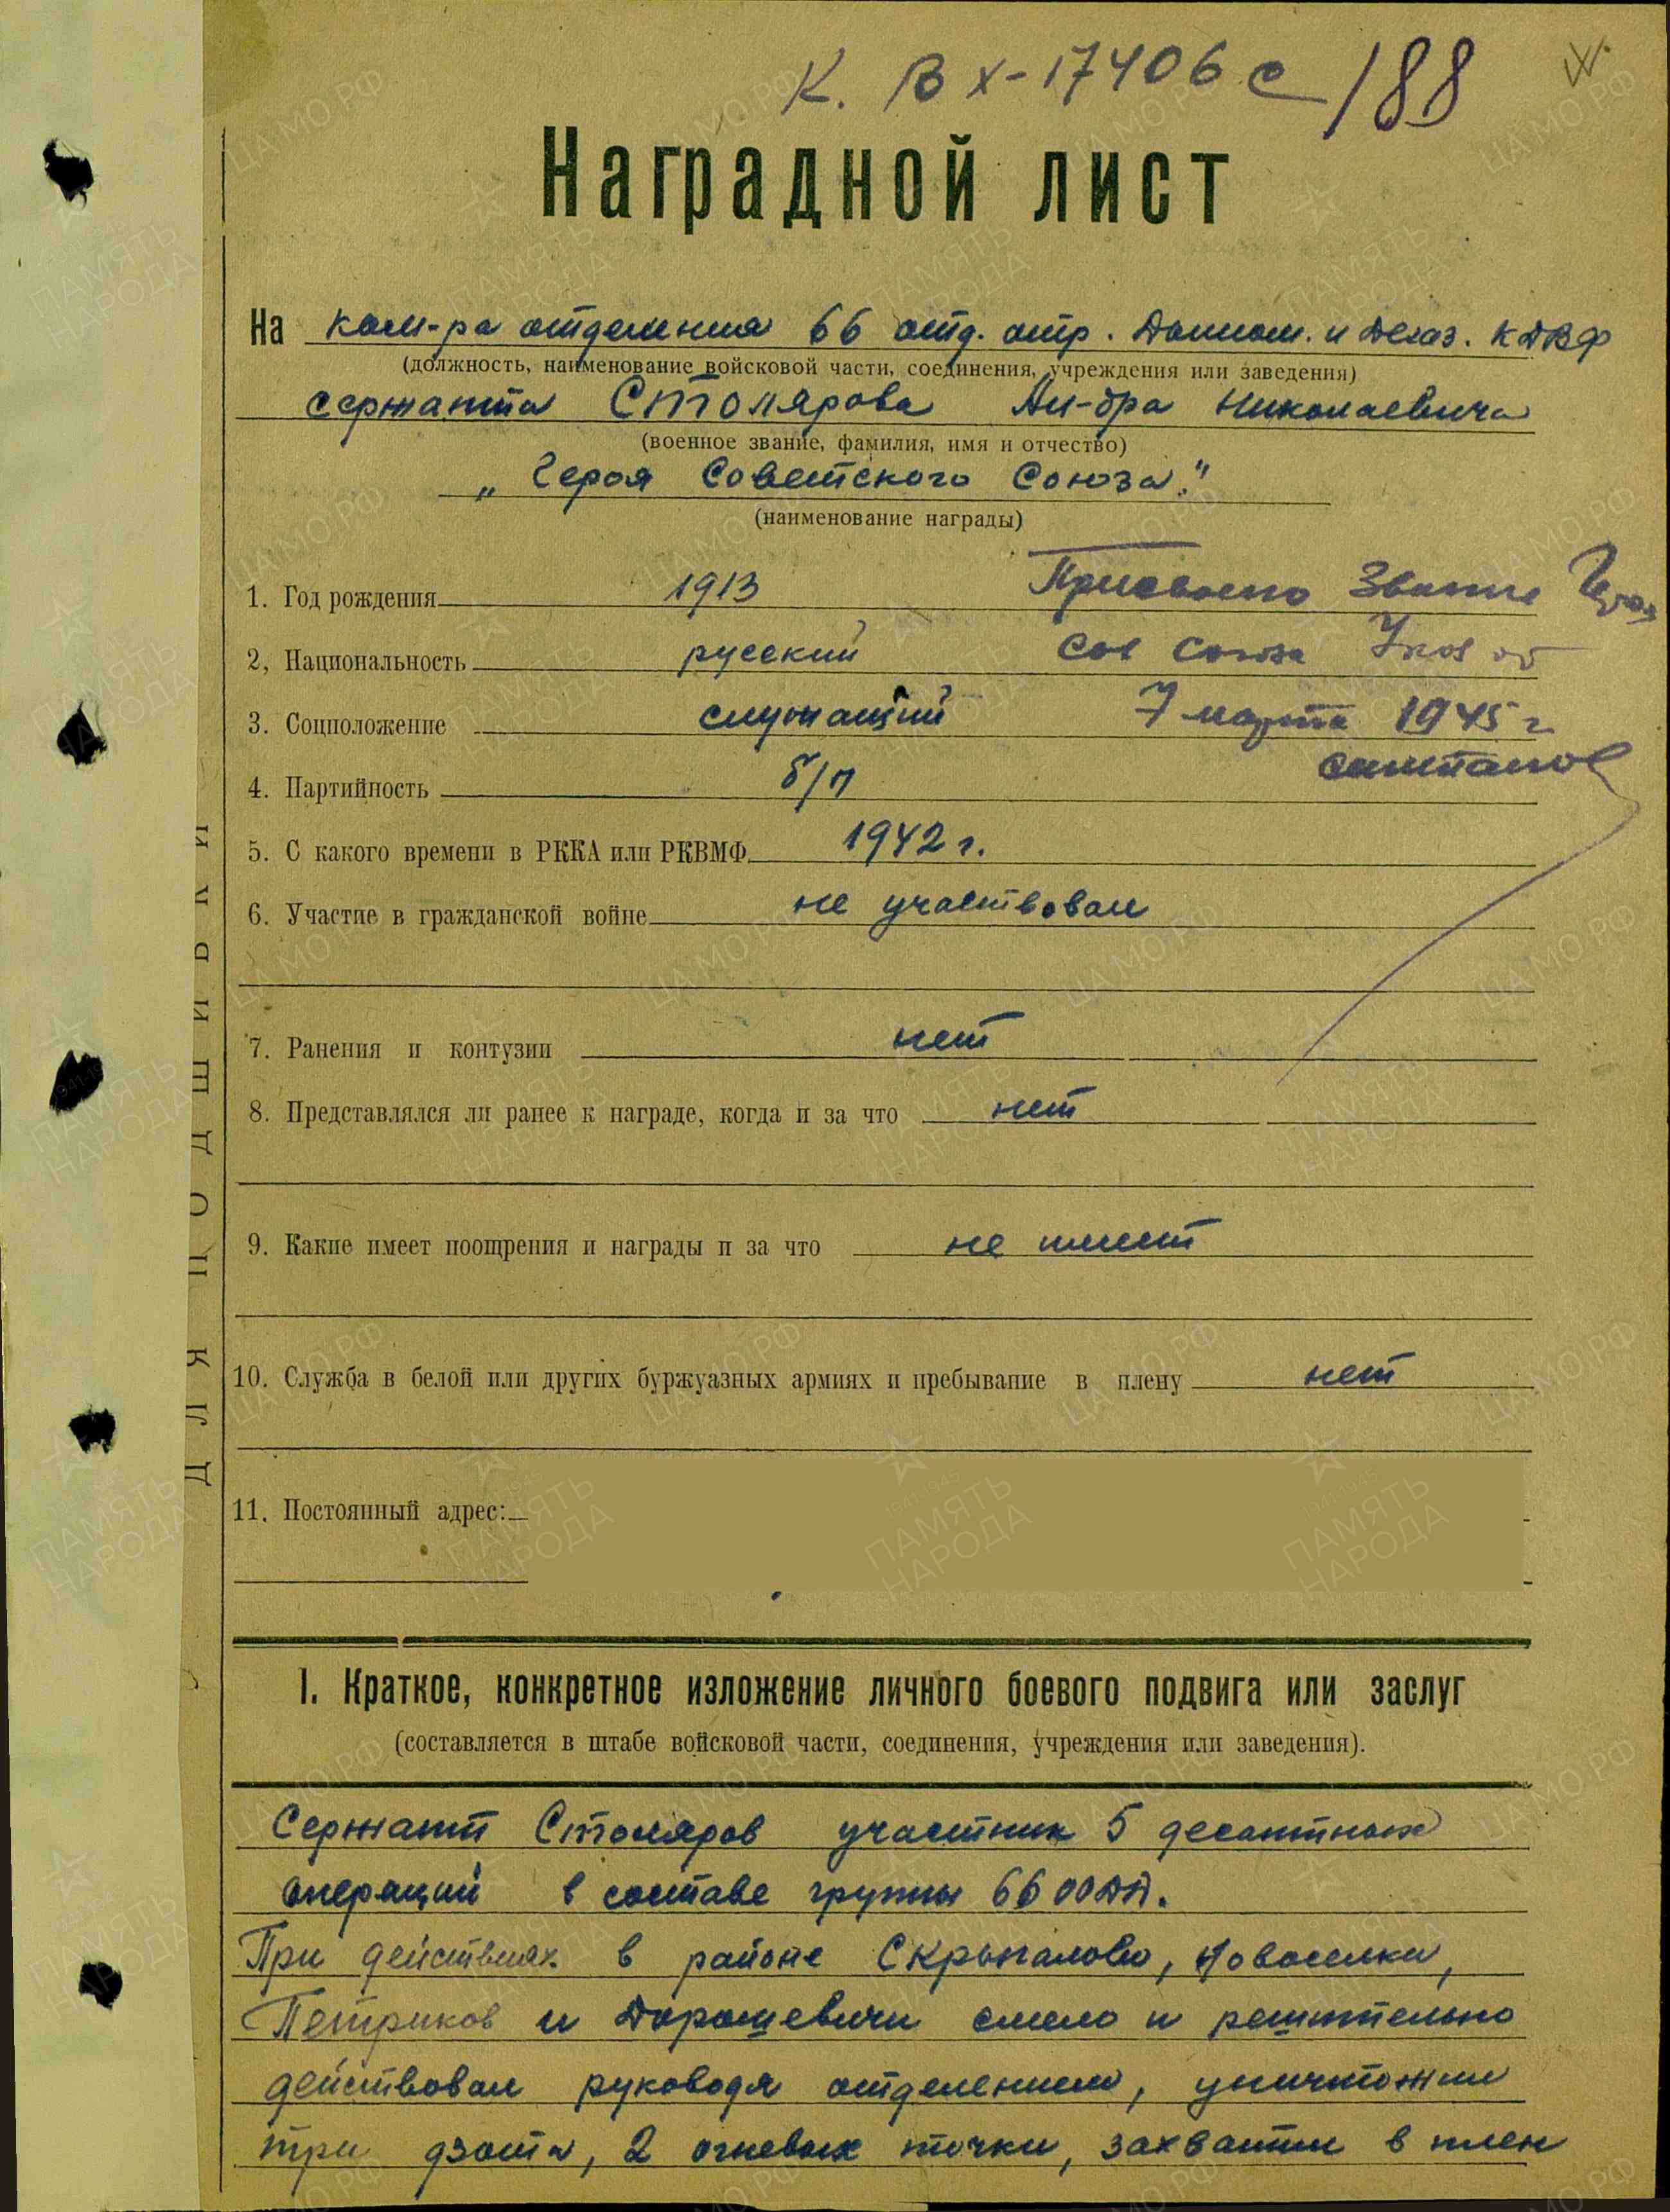 К. Вх-17406с/188
Наградной лист
На ком-ра отделения 66 отд. отр. Дымом. и Дегаз. КДВФ
(должность, наименование войсковой части, соединения, учреждения или заведения)
сержанта Столярова Ал-дра Николаевича
(военное звание, фамилия, имя и отчество)
„Героя Советского Союза."
(наименование награды)
1. Год рождения 1913
Присвоено Звание Героя
2, Национальность русский
Сов Союза Указ от
3. Соцположение служащий
7 марта 1945 г
4. Партийность б/п
5. С какого времени в РККА или РКВМФ 1942 г.
6. Участие в гражданской войне не участвовал
7. Ранения и контузии нет
8. Представлялся ли ранее к награде, когда и за что нет
9. Какие имеет поощрения и награды и за что не имеет
10. Служба в белой или других буржуазных армиях и пребывание в плену нет
11. Постоянный адрес:
ДЛЯ ПОДШИВКИ
I. Краткое, конкретное изложение личного боевого подвига или заслуг
(составляется в штабе войсковой части, соединения, учреждения или заведения).
Сержант Столяров участник 5 десантных
операций в составе группы 66 ООДД.
При действиях в районе Скрыгалово, Новоселки,
Петриков и Дорошевичи смело и решительно
действовал руководя отделением, уничтожил
три дзота, 2 огневых точки, захватил в плен
ПАМЯТЬ НАРОДА
ЦАМО РФ